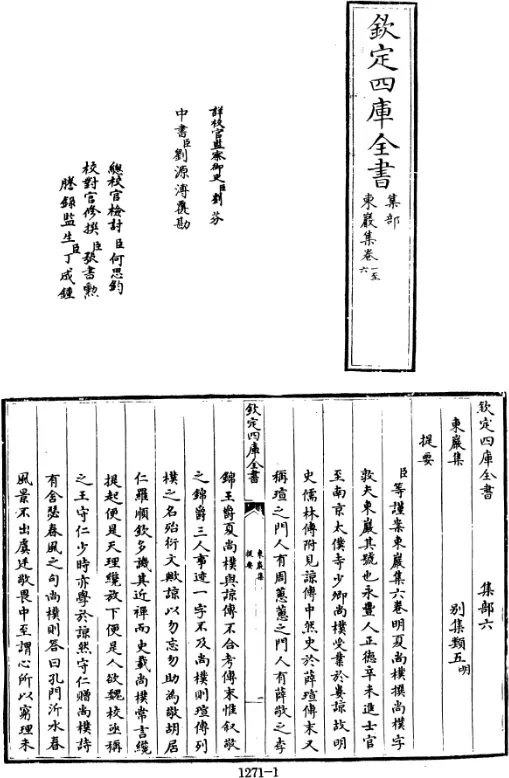 欽定四庫全書
集部
東巖集卷一至六
詳校官監察御史臣劉芬
中書臣劉源溥覆勘
總校官檢討臣何思鈞
校對官修撰臣張書勳
謄錄監生臣丁成鍾
欽定四庫全書
集部六
東巖集
別集類五明
提要
臣等謹案東巖集六卷明夏尚樸撰尚樸字
敦夫東巖其號也永豐人正德辛未進士官
至南京太僕寺少卿尚樸受業於婁諒故明
史儒林傳附見諒傳中然史於薛瑄傳末又
稱瑄之門人有周蕙蕙之門人有薛敬之李
欽定四庫全書
東巖集
提要
一
錦王爵夏尚樸與諒傳不合考傳末惟叙敬
之錦爵三人事迹一字不及尚樸則瑄傳列
樸之名殆衍文歟諒以勿忘勿助為敬胡居
仁羅順欽多譏其近禪而史載尚樸常言纔
提起便是天理纔放下便是人欲魏校亟稱
之王守仁少時亦學於諒然守仁贈尚樸詩
有舍瑟春風之句尚樸則答曰孔門沂水春
風景不出虞廷敬畏中至謂心所以窮理未
1271-1